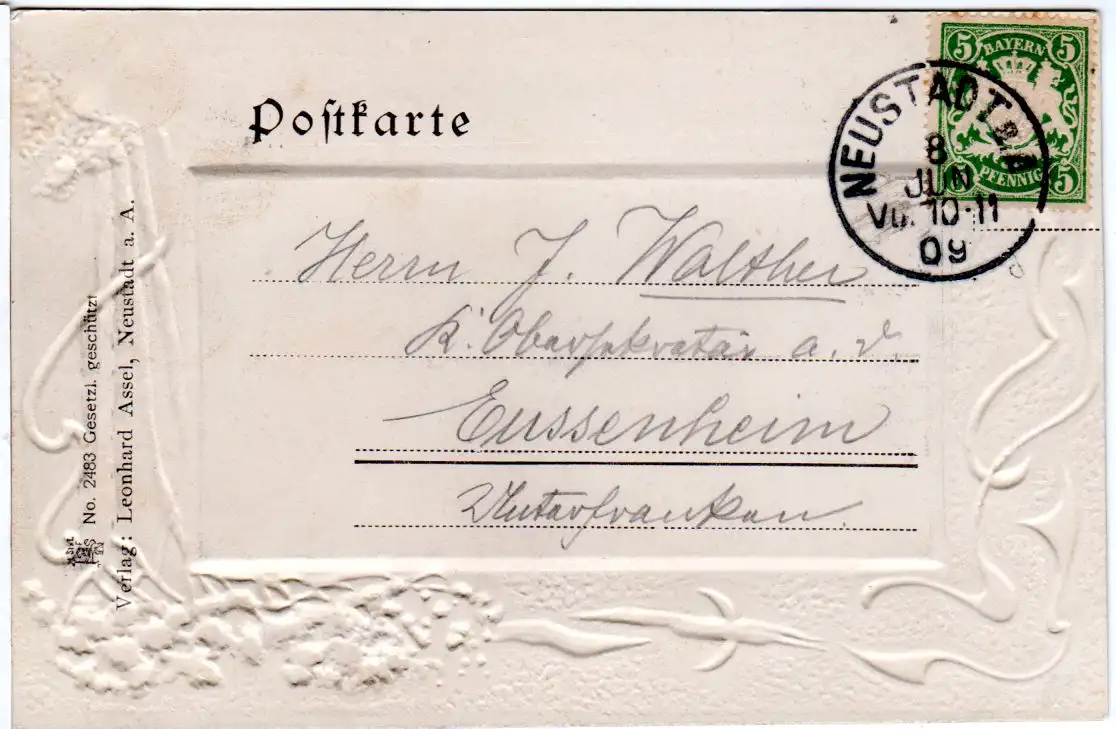 Postkarte
5 BAYERN 5
5 PFENNIG 5
NEUSTADT a.A.
8
JUN
Vor. 10-11
09
Herrn J. Walther
K. Obersekretär a. d.
Eussenheim
Unterfranken.
No. 2483 Gesetzl. geschützt
Verlag: Leonhard Assel, Neustadt a. A.